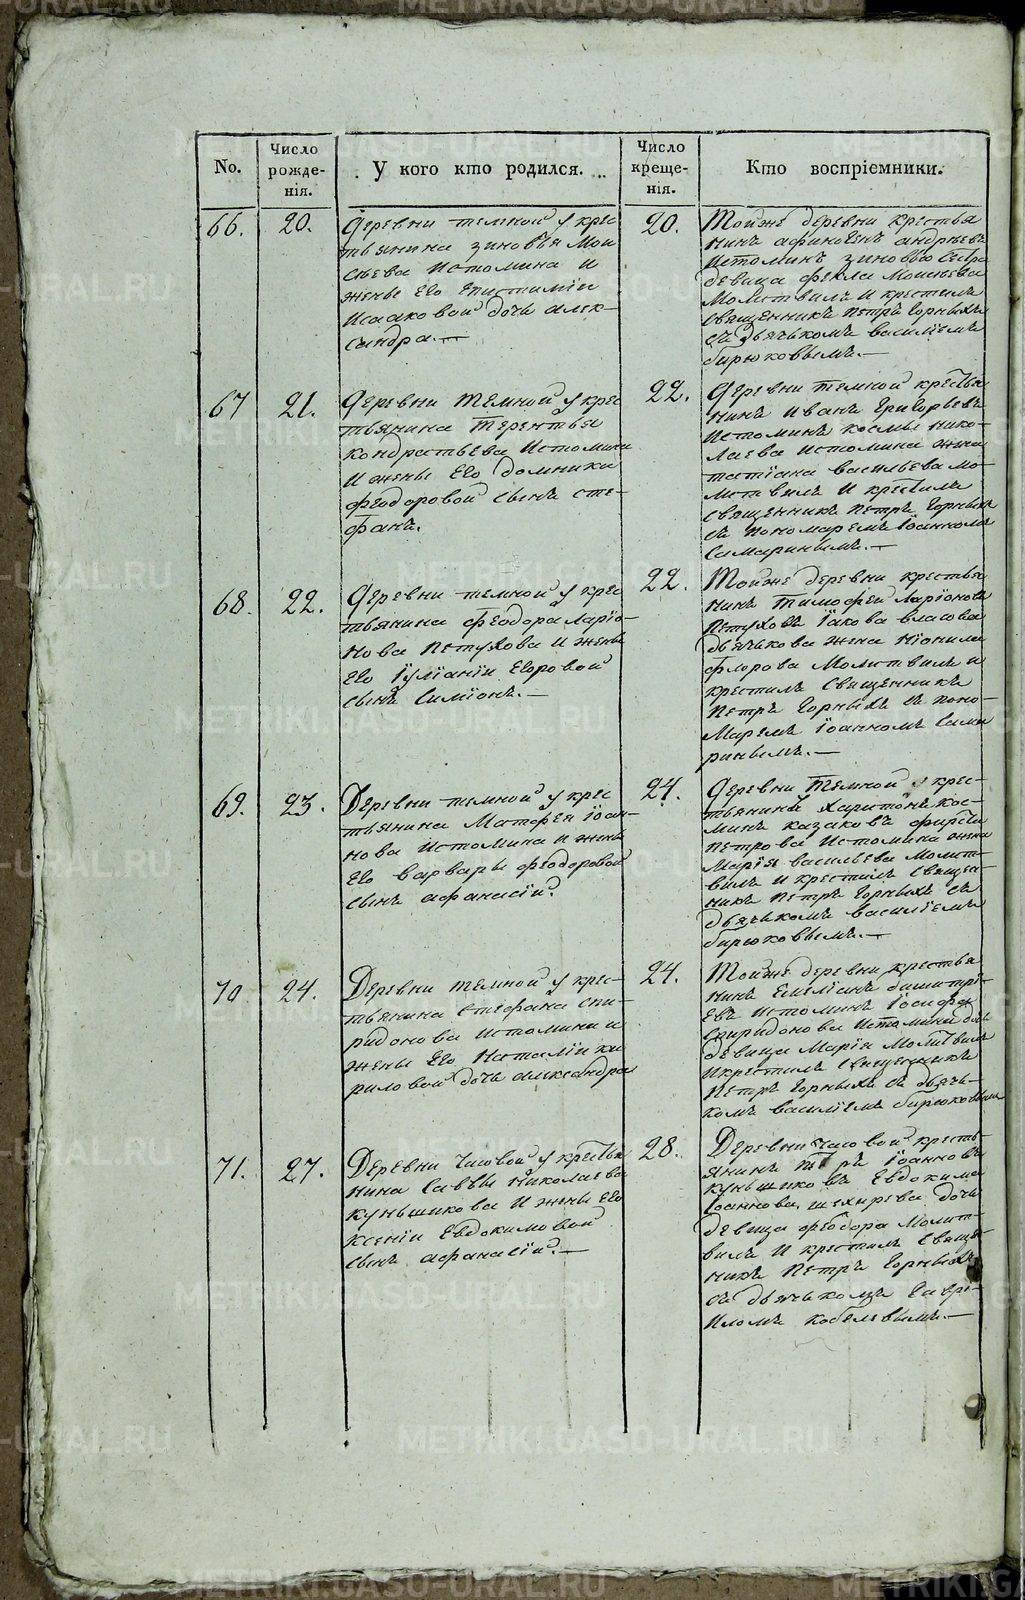 No.
Число рожде-
нія.
У кого кто родился.
Число креще-
нія.
Кто воспріемники.
66.
20.
Деревни темной у крес
тьянина зиновья Мои
сѣева Истомина и
жены Его Епистиміи
Исааковой дочь алек-
сандра.—
20.
Тойже деревни крестья
нинъ афиногенъ андрѣевъ
Истоминъ зиновью
девица фекла Моисѣева
Молитвилъ И крестилъ
священникъ Петръ Горныхъ
съ дьячькомъ василіемъ
бирюковымъ.—
67
21.
Деревни Темной у крес
тьянина Терентья
кондратьева Истомина
И жены Его домники
феодоровой сынъ сте-
фанъ.
22.
Деревни темной крестья
нинъ Иванъ Григорьевъ
Истоминъ космы нико-
лаева Истомина жена
татіана васильева мо-
литвилъ И крестилъ
священникъ Петръ Горныхъ
съ пономаремъ Іоанномъ
Самаринымъ.—
68.
22.
Деревни темной у крес
тьянина феодора Ларіо-
нова Петухова И жены
Его Іуліаніи Егоровой
сынъ Симіонъ.—
22.
Тойже деревни крестья
нинъ Тимофей Ларіоновъ
Петуховъ Іакова власова
дьячькова жена Нионила
флорова Молитвилъ и
крестилъ Священникъ
Петръ Горныхъ съ поно-
Маремъ Іоанномъ Сама
ринымъ.—
69.
23.
Деревни темной у крес
тьянина Матфея Іоан-
нова Истомина и жены
Его варвары феодоровой
сынъ афанасій.
24.
Деревни Темной крес-
тьянинъ Харитонъ кос-
минъ казаковъ
петрова Истомина жена
Марія васильева Молит-
вилъ и крестилъ священ-
никъ Петръ Горныхъ съ
дьячькомъ василіемъ
бирюковымъ.—
70
24.
Деревни темной у крес-
тьянина Стефана спи-
ридонова Истомина и
жены Его Наталіи ки
риловой дочь александра
24.
Тойже деревни крестья
нинъ Емеліанъ димитрі-
евъ Истоминъ Іосифа
спиридонова Истомина дочь
девица Марія Молитвилъ
Икрестилъ Священникъ
Петръ Горныхъ съ дьячь-
комъ василіемъ бирюковымъ
71.
27.
Деревни Часовой у крестья
нина Саввы Николаева
куньщикова И жены Его
ксеніи Евдокимовой
сынъ афанасій.—
28.
Деревни Часовой кресть-
янинъ Петръ Іоанновъ
куньщиковъ Евдокима
Іоаннова дочь
девица феодора Молит-
вилъ И крестилъ Свяще-
никъ Петръ Горныхъ
съ дьячькомъ Гаври-
иломъ кобелевымъ.—
METRIKI.GASO-URAL.RU